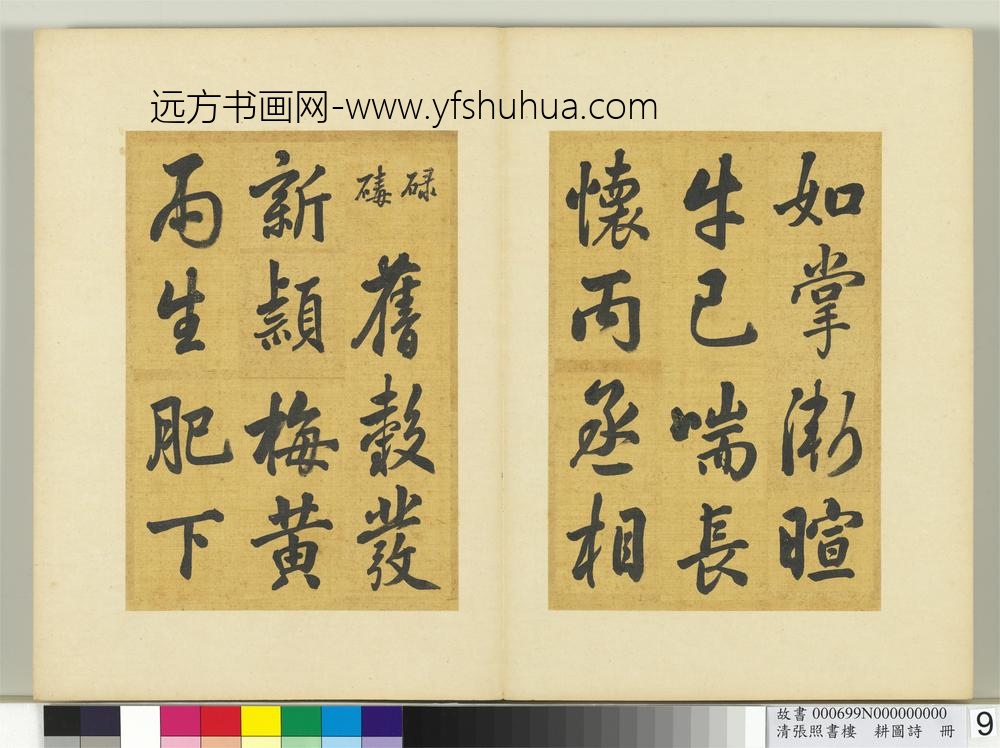 远方书画网-www.yfshuhua.com
如掌漸暄
牛已喘長
懷丙丞相
碌
碡
舊穀發
新穎梅黄
雨生肥下
故書 000699N000000000
清張照書樓 耕圖詩 冊
9